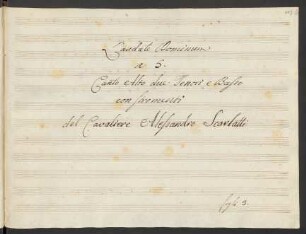 Laudate Dominum
a 5.
Canto Alto due Tenori e Basso
con stromenti
del Cavaliere Alessandro Scarlatti